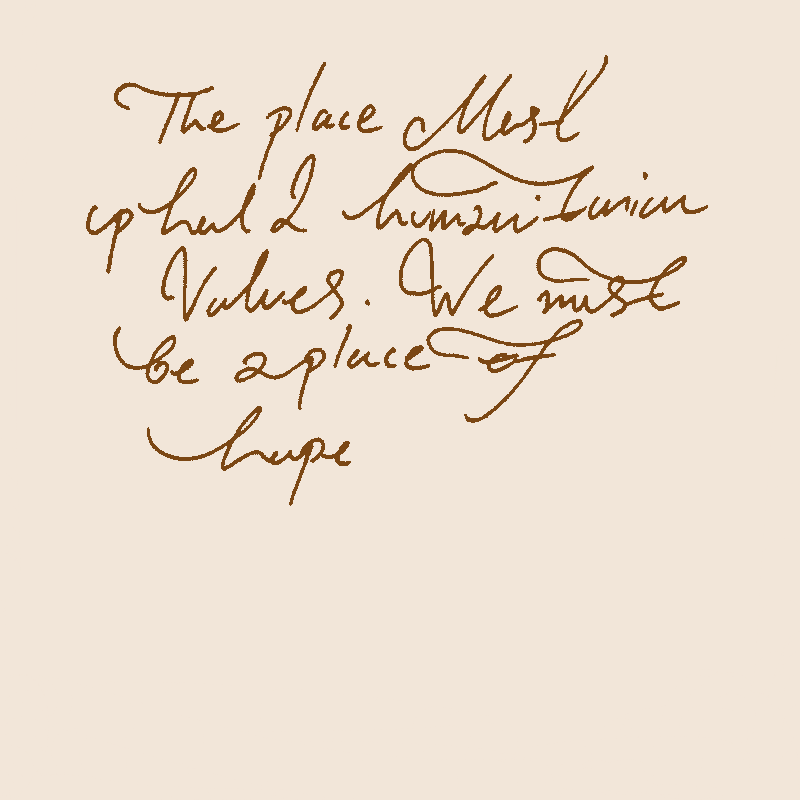 The place Must
uphold humanitarian
Values. We must
be a place of
hope